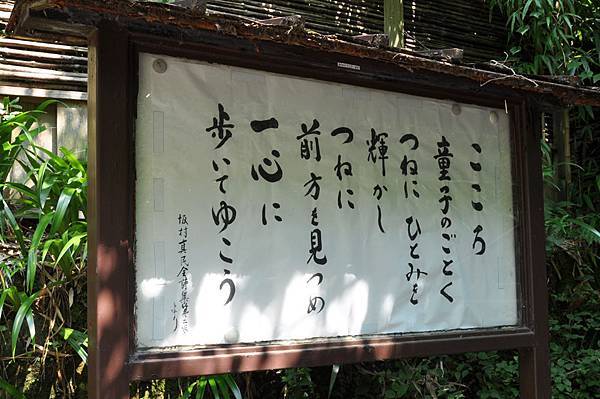 こころ
童子のごとく
つねに ひとみを
輝かし
つねに
前方を見つめ
一心に
歩いてゆこう
坂村真民全詩集第
より